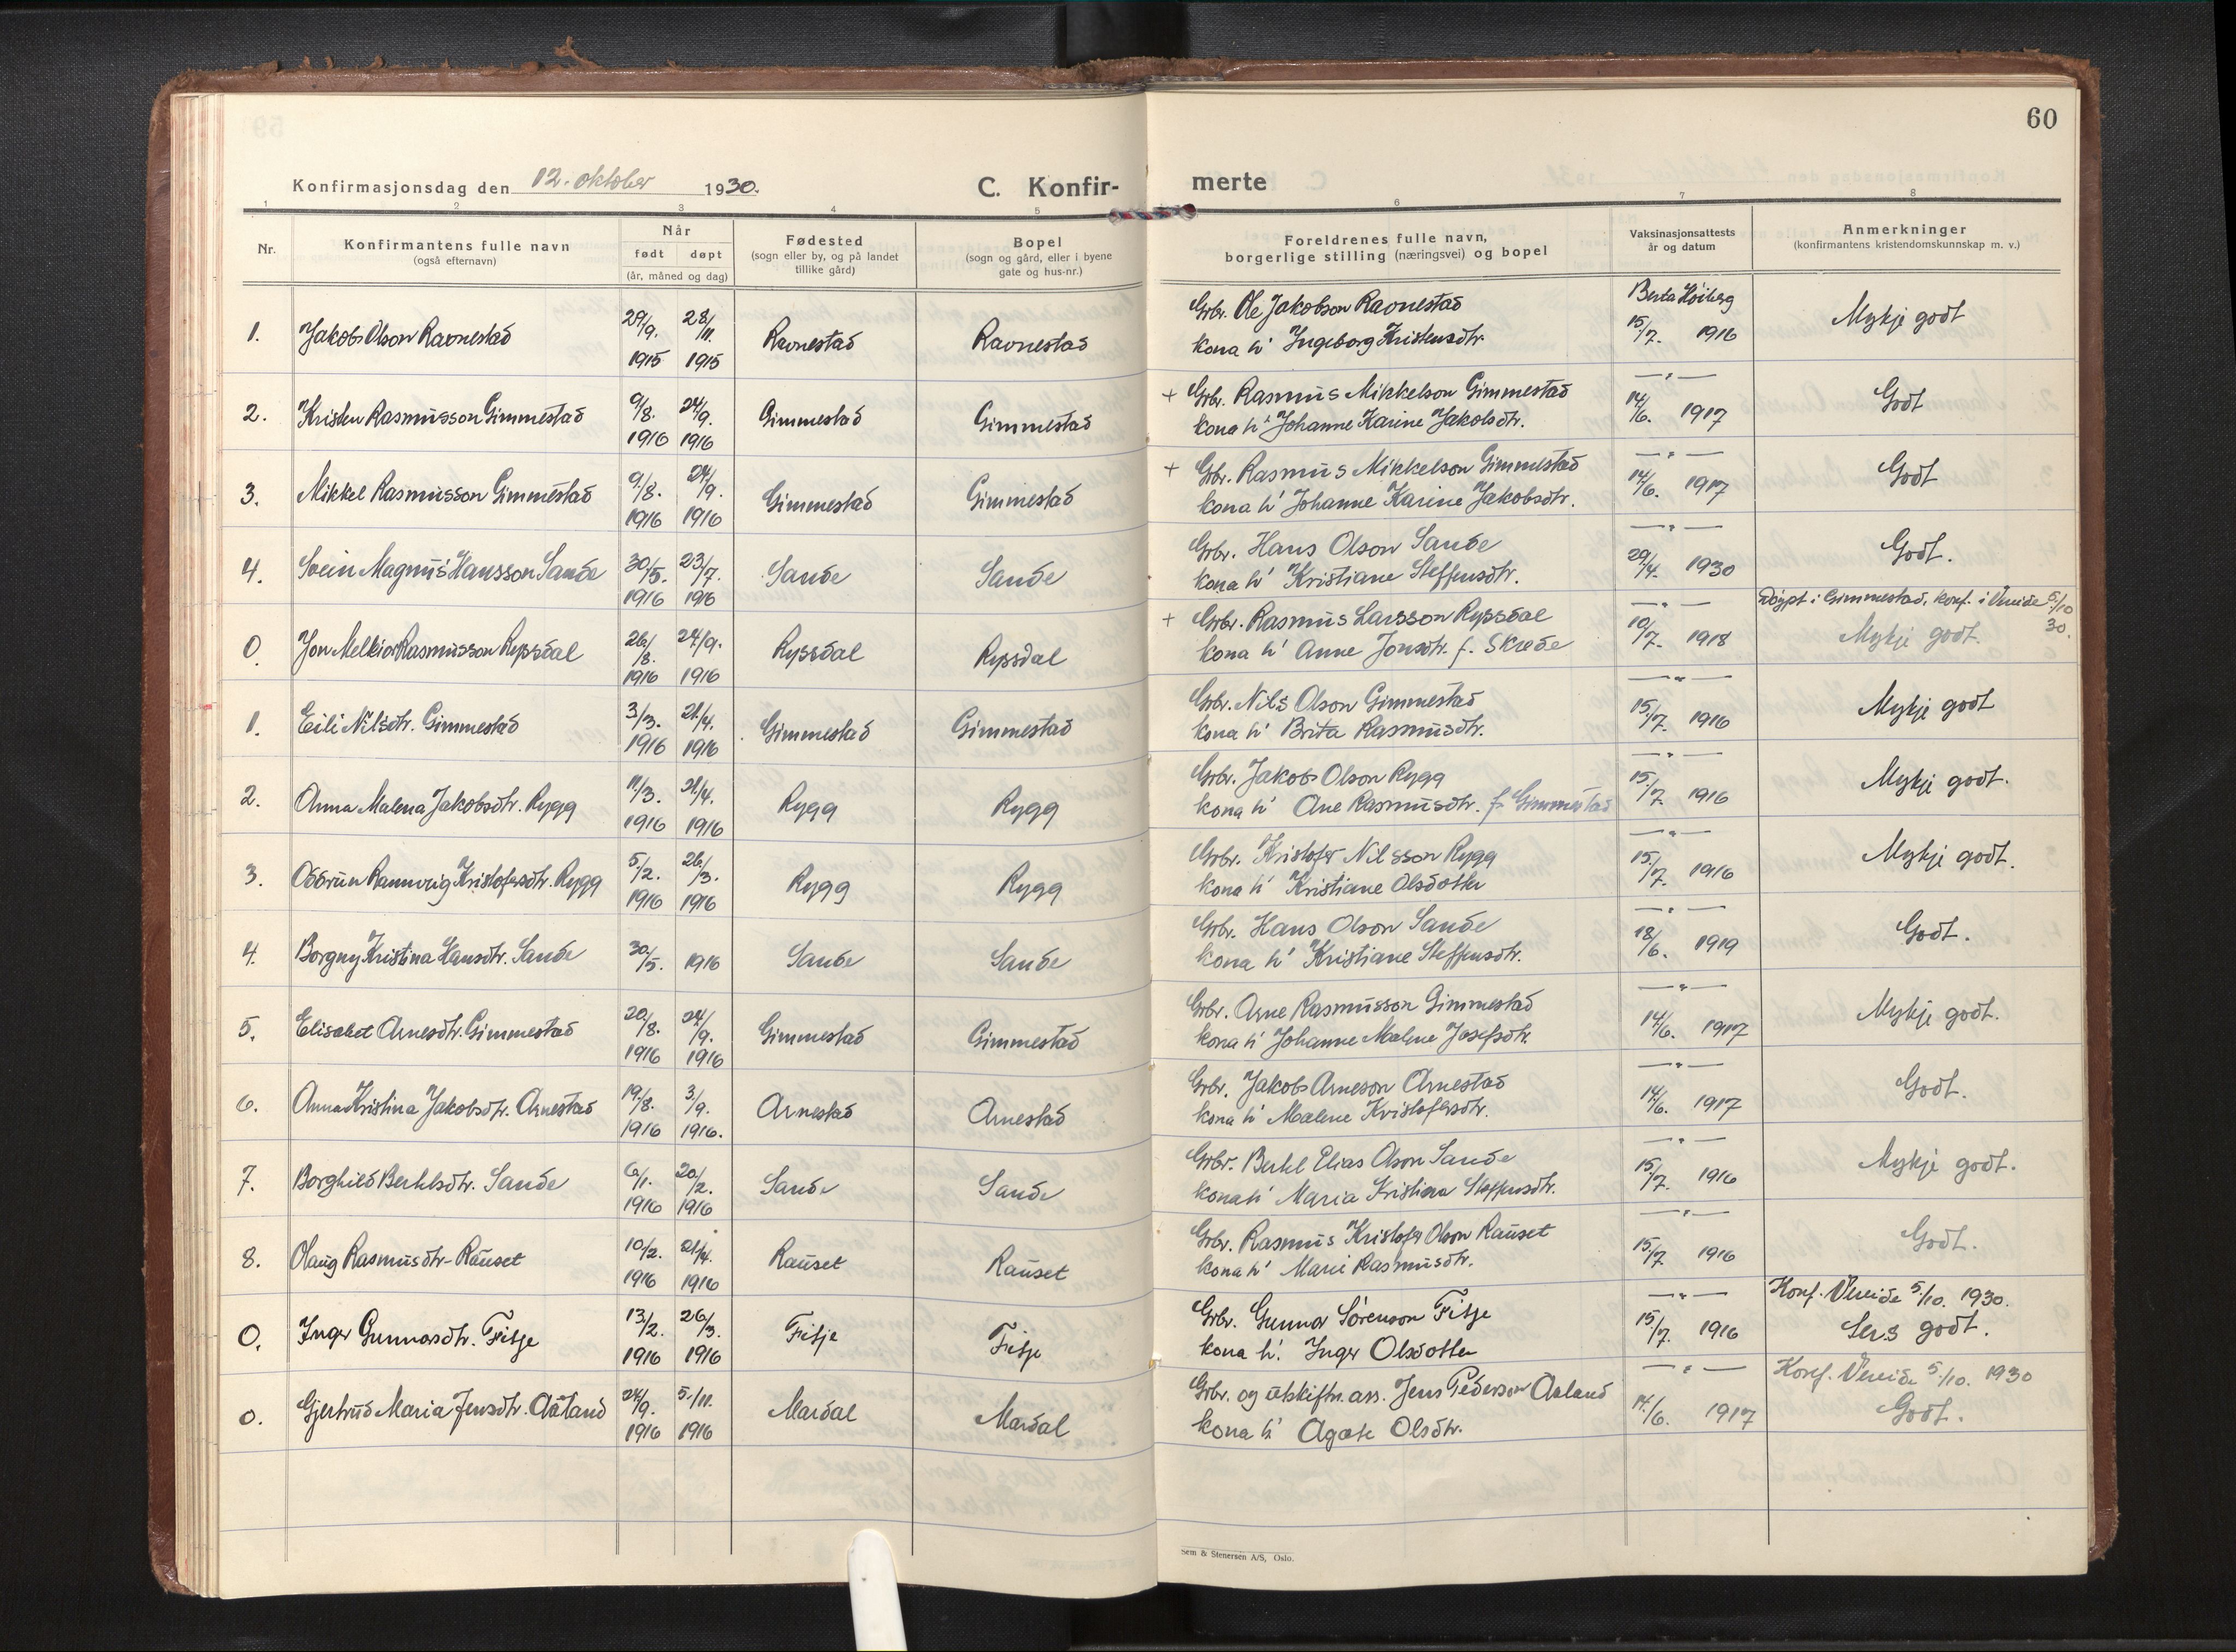 60
Konfirmasjonsdag den 12. oktober 1930.
C. Konfir- merte
1 2 3 4 5 6 7 8
Nr.
Konfirmantens fulle navn
(også efternavn)
Når
født døpt
(år, måned og dag)
Fødested
(sogn eller by, og på landet
tillike gård)
Bopel
(sogn og gård, eller i byene
gate og hus-nr.)
Foreldrenes fulle navn,
borgerlige stilling (næringsvei) og bopel
Vaksinasjonsattests
år og datum
Anmerkninger
(konfirmantens kristendomskunnskap m. v.)
1. Jakob Olson Ravnestad 29/9. 1915 28/11. 1915 Ravnestad Ravnestad
Grbr. Ole Jakobson Ravnestad
kona h' Ingeborg Kristensdtr.
Berta Höiberg
15/7. 1916 Mykje godt
2. Kristen Rasmusson Gimmestad 9/8. 1916 24/9. 1916 Gimmestad Gimmestad
+ Grbr. Rasmus Mikkelson Gimmestad
kona h' Johanne Karine Jakobsdtr.
—"—
14/6. 1917 Godt
3. Mikkel Rasmusson Gimmestad 9/8. 1916 24/9. 1916 Gimmestad Gimmestad
+ Grbr. Rasmus Mikkelson Gimmestad
kona h' Johanne Karine Jakobsdtr.
—"—
14/6. 1917 Godt
4. Svein Magnus Hansson Sande 30/5. 1916 23/7. 1916 Sande Sande
Grbr. Hans Olson Sande
kona h' Kristiane Steffensdtr.
—"—
29/4. 1930 Godt.
0. Jon Melkior Rasmusson Ryssdal 26/8. 1916 24/9. 1916 Ryssdal Ryssdal
+ Grbr. Rasmus Larsson Ryssdal
kona h' Anne Jonsdtr. f. Skrede
—"—
10/7. 1918 Döypt i Gimmestad, konf. i Vereide 5/10 30.
Mykje godt.
1. Eili Nilsdtr. Gimmestad 3/3. 1916 21/4. 1916 Gimmestad Gimmestad
Grbr. Nils Olson Gimmestad
kona h' Brita Rasmusdtr.
—"—
15/7. 1916 Mykje godt
2. Anna Malena Jakobsdtr. Rygg 11/3. 1916 21/4. 1916 Rygg Rygg
Grbr. Jakob Olson Rygg
kona h' Ane Rasmusdtr. f. Gimmestad
—"—
15/7. 1916 Mykje godt.
3. Oddrun Rannveig Kristofersdtr. Rygg 5/2. 1916 26/3. 1916 Rygg Rygg
Grbr. Kristofer Nilsson Rygg
kona h' Kristiane Olsdotter
—"—
15/7. 1916 Mykje godt.
4. Borgny Kristina Hansdtr. Sande 30/5. 1916 Sande Sande
Grbr. Hans Olson Sande
kona h' Kristiane Steffensdtr.
—"—
18/6. 1919 Godt.
5. Elisabet Arnesdtr. Gimmestad 20/8. 1916 24/9. 1916 Gimmestad Gimmestad
Grbr. Arne Rasmusson Gimmestad
kona h' Johanne Malene Josefsdtr.
—"—
14/6. 1917 Mykje godt.
6. Anna Kristina Jakobsdtr. Arnestad 19/8. 1916 3/9. 1916. Arnestad Arnestad
Grbr. Jakob Arneson Arnestad
kona h' Malene Kristofersdtr.
—"—
14/6. 1917 Godt.
7. Borghild Bertelsdtr. Sande 6/1. 1916 20/2. 1916 Sande Sande
Grbr. Bertel Elias Olson Sande
kona h' Maria Kristina Steffensdtr.
—"—
15/7. 1916 Mykje godt.
8. Olaug Rasmusdtr. Rauset 10/2. 1916 21/4. 1916 Rauset Rauset
Grbr. Rasmus Kristofer Olson Rauset
kona h' Marie Rasmusdtr.
—"—
15/7 1916 Godt.
0. Inger Gunnarsdtr. Fitje 13/2. 1916 26/3. 1916 Fitje Fitje
Grbr. Gunnar Sörenson Fitje
kona h'. Inger Olsdotter
—"—
15/7. 1916 Konf. Vereide 5/10. 1930.
Sers godt.
0. Gjertrud Maria Jensdtr. Aaland 24/9. 1916 5/11. 1916 Mardal Mardal
Grbr. og utskiftn.ass. Jens Pederson Aaland
kona h'. Agate Olsdtr.
—"—
14/6. 1917 Konf. Vereide 5/10. 1930
Godt.
Sem & Stenersen A/S, Oslo.